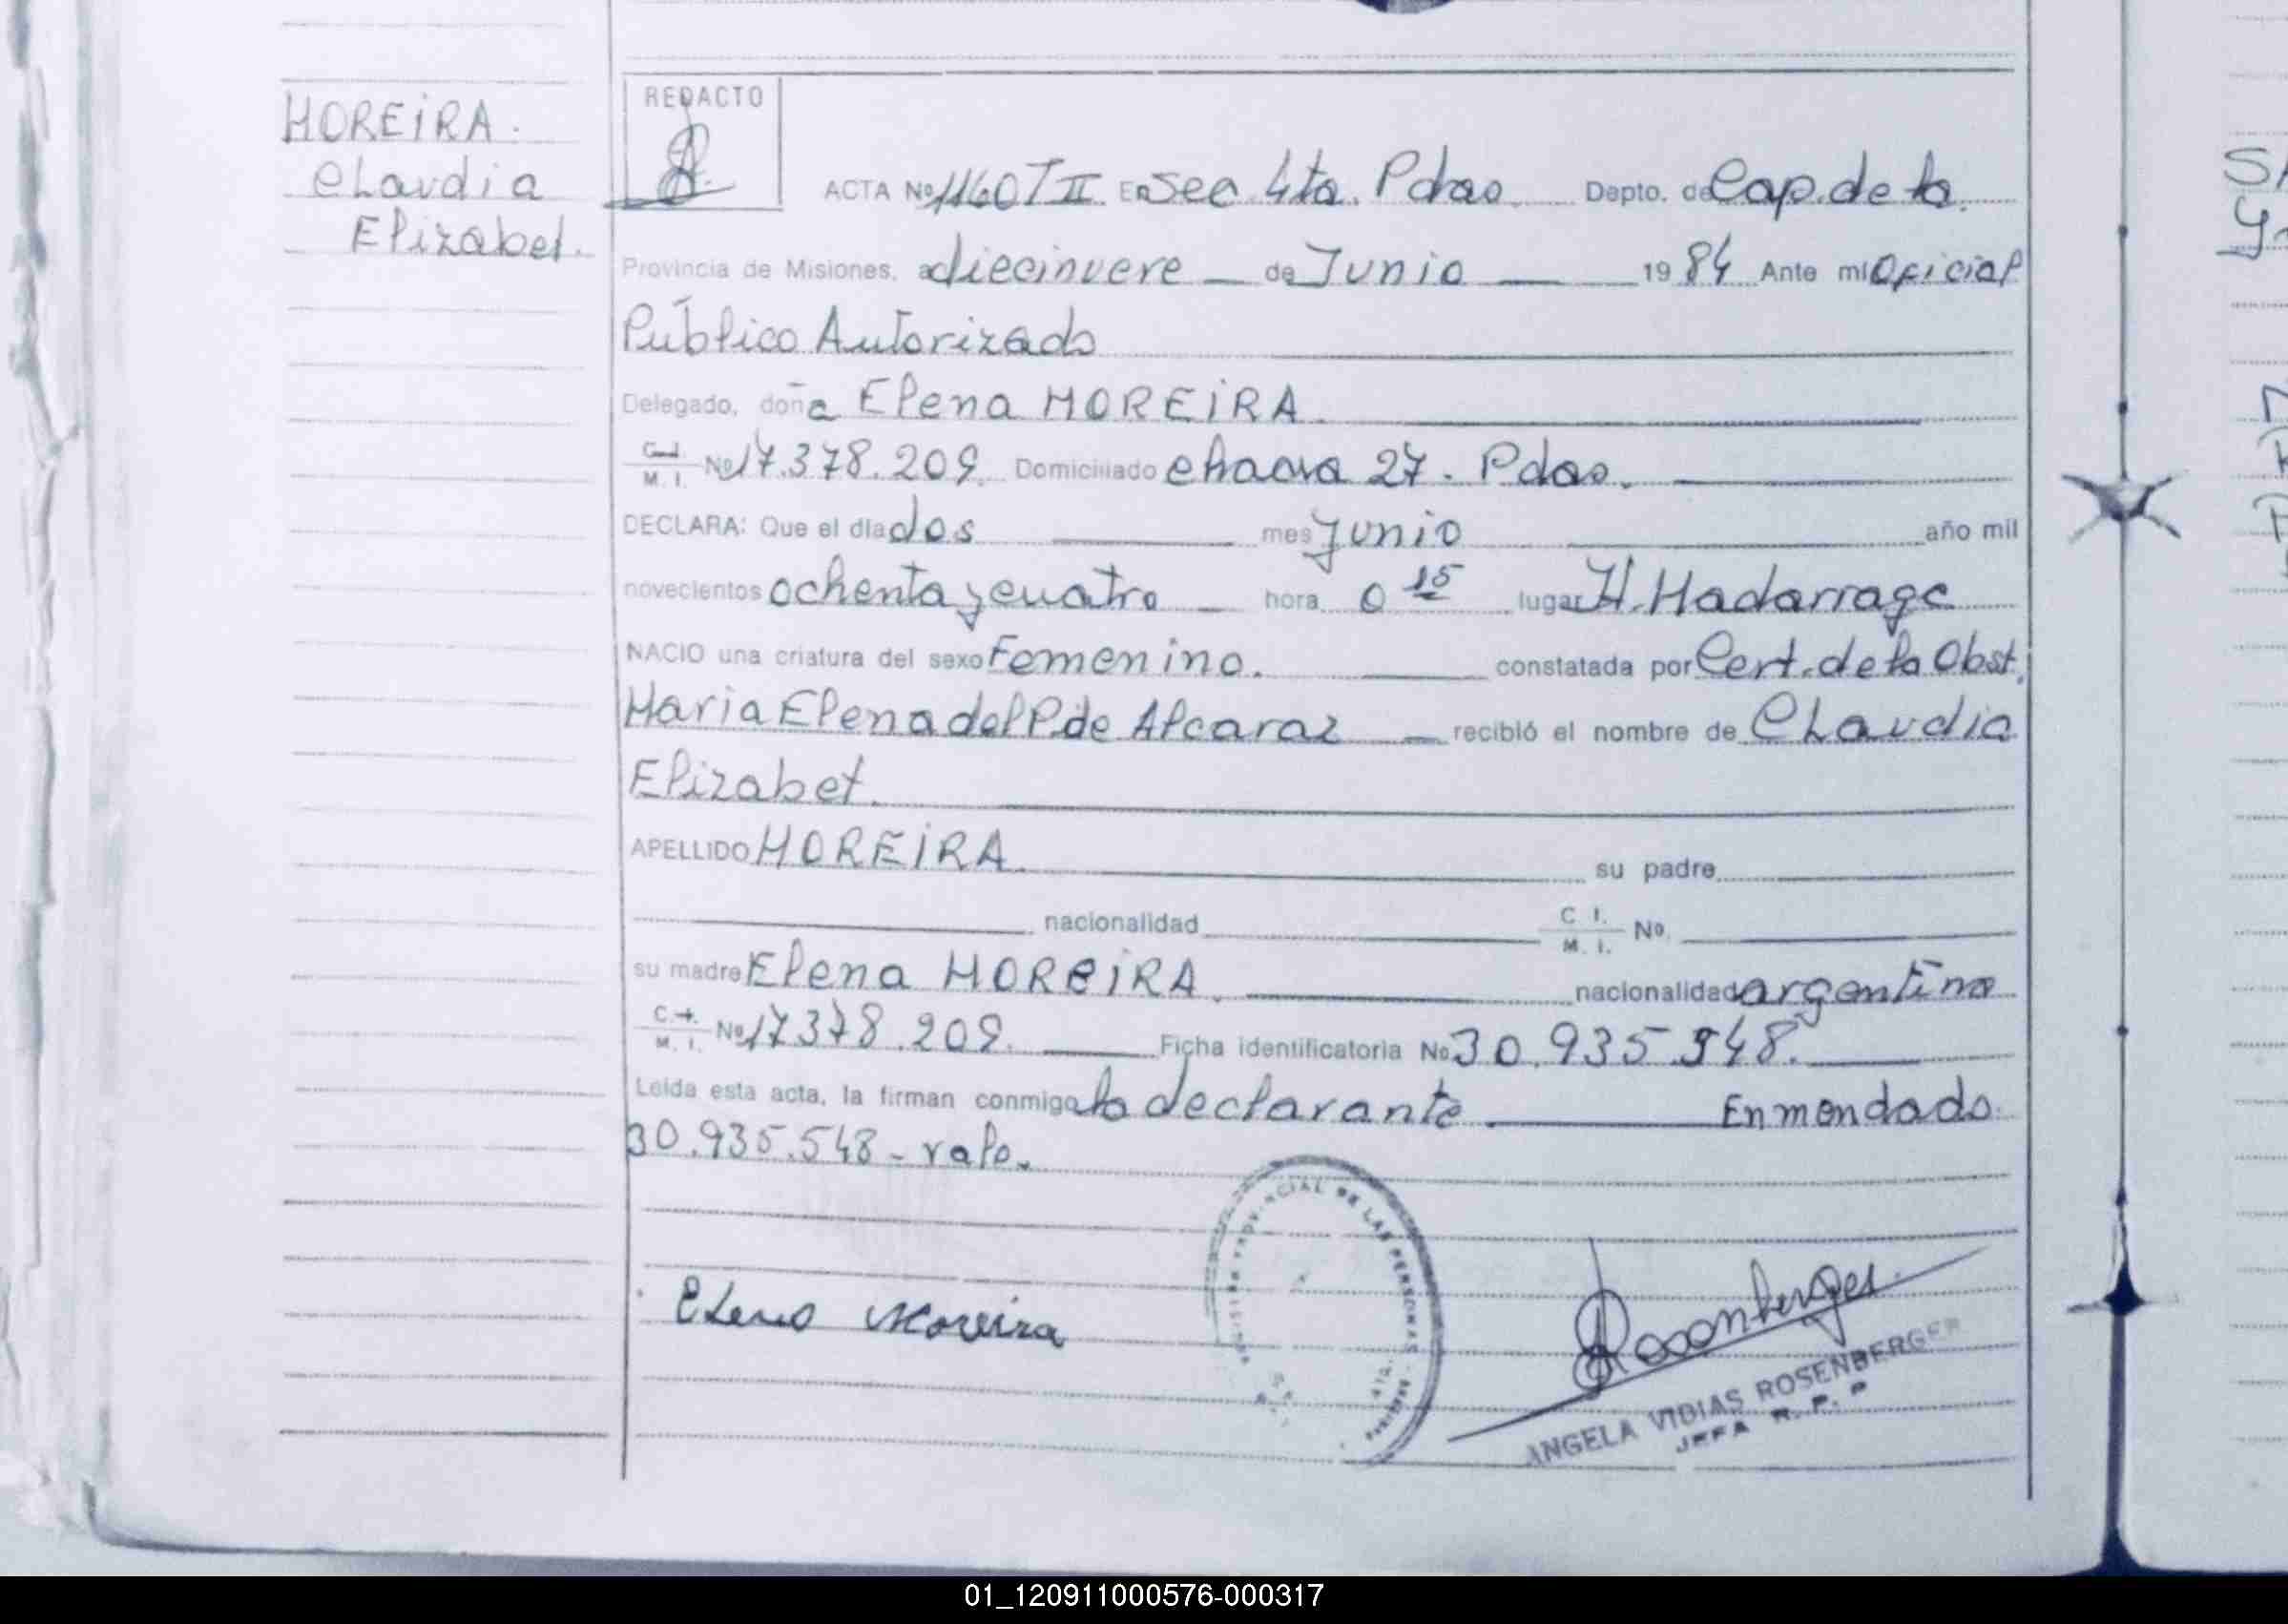 MOREIRA.
Claudia
Elizabet.
REDACTO
ACTA Nº 1160 T II. En Sec. 4ta. Pdas. Depto. de Cap. de la
Provincia de Misiones, a diecinueve de Junio 1984 Ante mí Oficial
Público Autorizado
Delegado, doña Elena MOREIRA
C.I. M. I. Nº 17.378.209. Domiciliado chacra 27. Pdas.
DECLARA: Que el día dos mes Junio año mil
novecientos ochenta y cuatro hora 0 15 lugar H. Madarraga
NACIO una criatura del sexo Femenino. constatada por Cert. de la Obst.
Maria Elena del P. de Alcaraz recibió el nombre de Claudia
Elizabet.
APELLIDO MOREIRA. su padre
nacionalidad C I. M. I. Nº
su madre Elena MOREIRA. nacionalidad argentina
C.I. M. I. Nº 17378.209. Ficha identificatoria Nº 30.935.548.
Leída esta acta, la firman conmigo la declarante Enmendado:
30.935.548 - vale.
Elena Moreira
PROVINCIAL DE LAS PERSONAS
Rosenberger
ANGELA VIDIAS ROSENBERGER
JEFA R. P. P
01_120911000576-000317